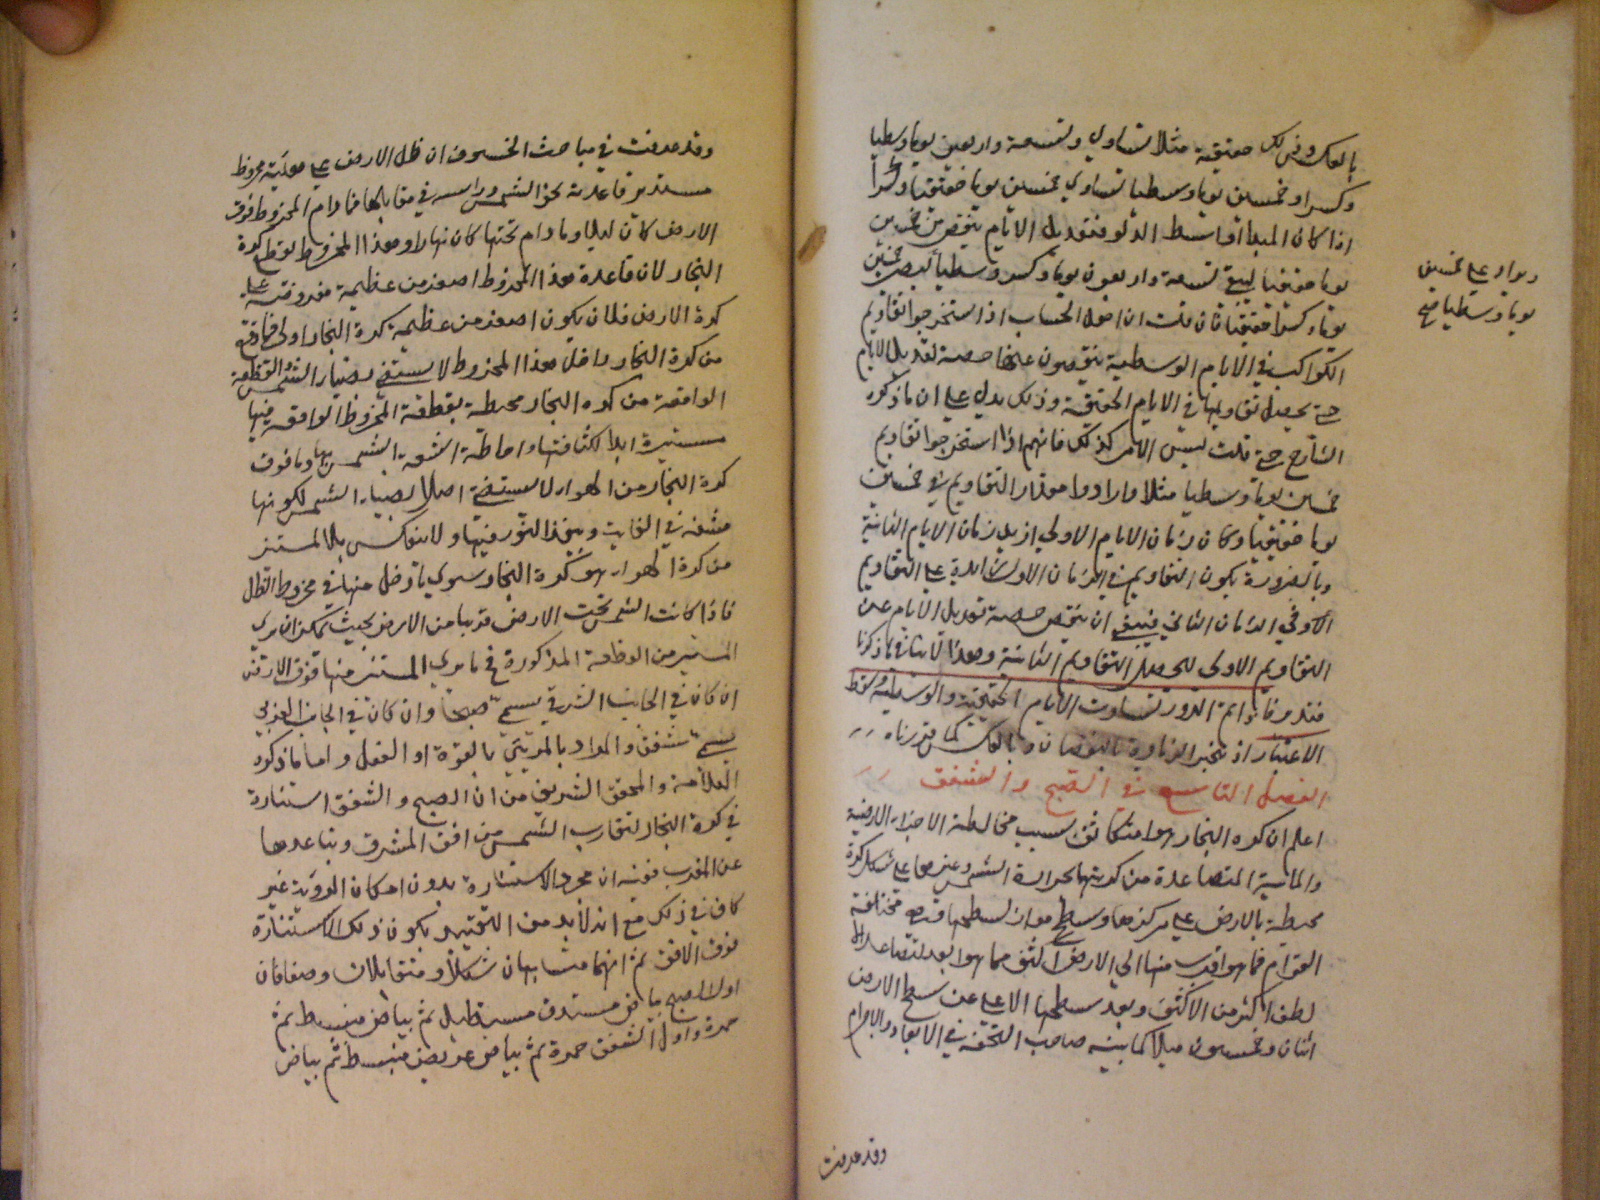 بالعكس وفي كل حقيقية مثلا تساوي وتسعة واربعين يوما وسطيا
وكسرا وخمسين يوما وسطيا تساوي خمسين يوما حقيقيا وكسرا
اذا كان المبدا اواسط الدلو فتعديل الايام ينقص من خمسين
يوما حقيقيا ليبقى تسعة واربعون يوما وكسر وسطيا ليصير خمسين
يوما وكسرا حقيقيا فان قلت ان اهل الحساب اذا استخرجوا تقاويم
الكواكب في الايام الوسطية ينقصون عنها حصة تعديل الايام
حتى يحصل تقاويمها في الايام الحقيقة وذلك يدل على ان ما ذكره
الشارح قلت ليس الامر كذلك فانهم اذا استخرجوا تقاويم
خمسين يوما وسطيا مثلا وارادوا مقدار التقاويم في خمسين
يوما حقيقيا وكان زمان الايام الاولى ازيد زمان الايام الثانية
وبالضرورة يكون التقاويم في الزمان الاول زائدة على التقاويم
في الزمان الثاني فينبغي ان ينقص حصة تعديل الايام عن
التقاويم الاولى ليحصل التقاويم الثانية وهذا لا ينافي ما ذكرنا
فتدبر فاذا تم الدور تساوت الايام الحقيقية والوسطية وسقط
الاعتبار اذ ينجبر الزيادة بالنقصان وبالعكس كما قررناه
الفصل التاسع في الصبح والشفق
اعلم ان كره البخار هوا متكاثف بسبب مخالطة الاجزاء الارضية
والمائية المتصاعدة من كرتيها بحرارة الشمس وغيرها على شكل كرة
محيطة بالارض على مركزها وسطح مواز لسطحها مختلفة
القوام فما هو اقرب منها الى الارض اكثف مما هو ابعد لتصاعد
لطف اكثر من الاكثف وبعد سطحها الاعلى عن سطح الارض
اثنان وخمسون ميلا كما بينه صاحب التحفه في الابعاد والاجرام
وقد عرفت
زائد على خمسين
يوما وسطيا صح
وقد عرفت في مباحث الخسوف ان ظل الارض على هيئة مخروط
مستدير قاعدته نحو الشمس وراسه في مقابلها فما دام المخروط فوق
الارض كان ليلا وما دام تحتها كان نهارا وهذا المخروط يقطع كرة
البخار لان قاعدة هذا المخروط اصغر من عظيمة مفروضة على
كرة الارض فلان يكون اصغر من عظيمة كرة البخار اولى فما وقع
من كرة البخار داخل هذا المخروط لا يستضئ بضياء الشمس والقطعة
الواقعة من كره البخار محيطة بقطعة المخروط الواقعة فيها
مستنيرة ابدا لكثافتها واحاطة اشعة الشمس بها وما فوق
كرة البخار من الهواء لا يستضئ اصلا بضياء الشمس لكونها
مشفه في الغاية وينفذ النور فيها ولا ينعكس بل المستنير
من كرة الهواء هو كرة البخار سوى ما دخل منها في مخروط الظل
فاذا كانت الشمس تحت الارض قريبا من الارض بحيث يمكن ان يرى
المستنير من القطعة المذكورة فما يرى المستنير منها فوق الارض
ان كان في الجانب الشرقي يسمى صبحا وان كان في الجانب الغربي
يسمى شفقا والمراد بالمرئي بالقوة او الفعل واما ما ذكره
العلامة والمحقق الشريف من ان الصبح والشفق استنارة
في كرة البخار لتقارب الشمس من افق المشرق وتباعدها
عن المغرب ففيه ان مجرد الاستنارة بدون امكان الرؤية غير
كاف في ذلك مع انه لا بد من التقييد بكون ذلك الاستنارة
فوق الافق ثم انهما متشابهان شكلا ومتقابلان وضعا فان
اول الصبح بياض مستدق مستطيل ثم بياض منبسط ثم
حمرة واول الشفق حمرة ثم بياض عريض منبسط ثم بياض